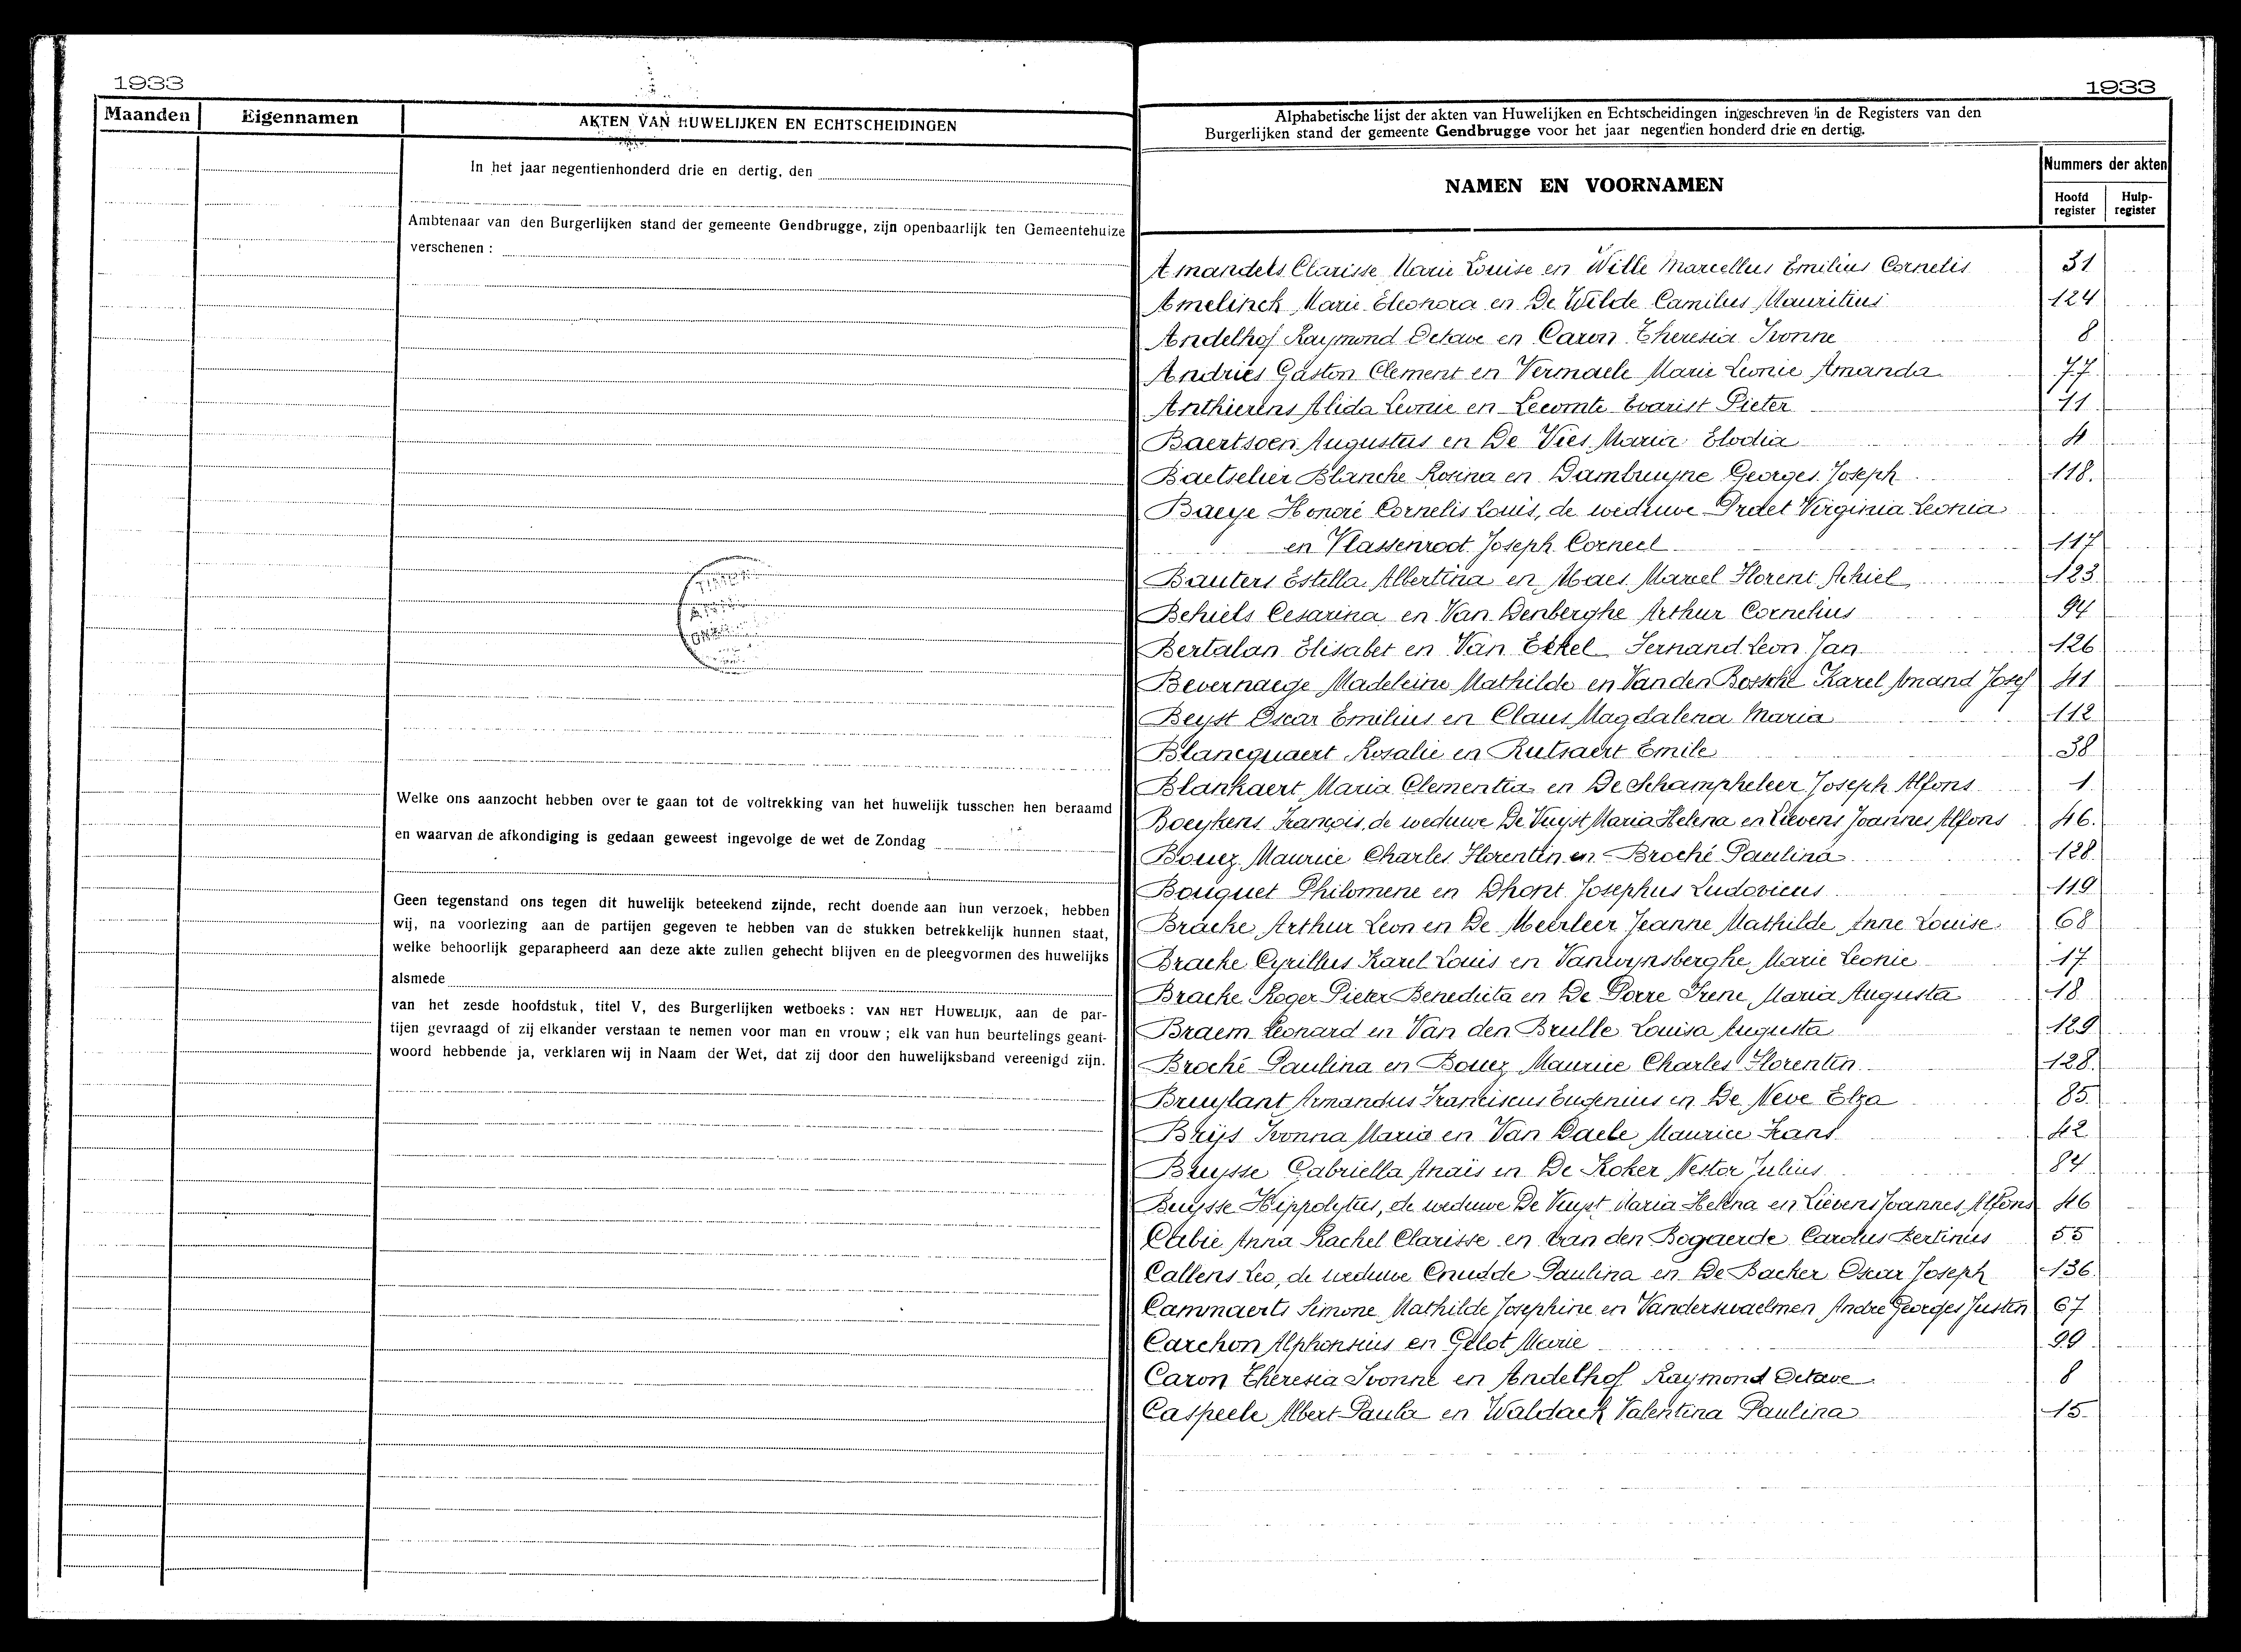 1933
Maanden Eigennamen AKTEN VAN HUWELIJKEN EN ECHTSCHEIDINGEN
In het jaar negentienhonderd drie en dertig, den
Ambtenaar van den Burgerlijken stand der gemeente Gendbrugge, zijn openbaarlijk ten Gemeentehuize
verschenen :
Welke ons aanzocht hebben over te gaan tot de voltrekking van het huwelijk tusschen hen beraamd
en waarvan de afkondiging is gedaan geweest ingevolge de wet de Zondag
Geen tegenstand ons tegen dit huwelijk beteekend zijnde, recht doende aan hun verzoek, hebben
wij, na voorlezing aan de partijen gegeven te hebben van de stukken betrekkelijk hunnen staat,
welke behoorlijk geparapheerd aan deze akte zullen gehecht blijven en de pleegvormen des huwelijks
alsmede
van het zesde hoofdstuk, titel V, des Burgerlijken wetboeks : VAN HET HUWELIJK, aan de par-
tijen gevraagd of zij elkander verstaan te nemen voor man en vrouw ; elk van hun beurtelings geant-
woord hebbende ja, verklaren wij in Naam der Wet, dat zij door den huwelijksband vereenigd zijn.
1933
Alphabetische lijst der akten van Huwelijken en Echtscheidingen ingeschreven in de Registers van den
Burgerlijken stand der gemeente Gendbrugge voor het jaar negentien honderd drie en dertig.
NAMEN EN VOORNAMEN
Nummers der akten
Hoofd register Hulp-register
Amandels Clarisse Marie Louise en Wille Marcellus Emilius Cornelis 31
Amelinck Marie Eleonora en De Wilde Camilus Mauritius 124
Andelhof Raymond Octave en Caron Theresia Ivonne 8
Andries Gaston Clement en Vermaele Marie Leonie Amanda 77
Anthierens Alida Leonie en Lecomte Evarist Pieter 71
Baertsoen Augustus en De Vies Maria Elodia 4
Baetselier Blanche Rosina en Dambruyne Georges Joseph 118.
Baeye Honoré Cornelis Louis, de weduwe Protet Virginia Leonia
en Vlassenroot Joseph Corneel 117
Bauters Estella Albertina en Maes Marcel Florent Achiel 123
Behiels Cesarina en Van Denberghe Arthur Cornelius 94
Bertalan Elisabet en Van Eekel Fernand Leon Jan 126
Bevernaege Madeleine Mathilde en Van den Bossche Karel Amand Josef 41
Beyst Oscar Emilius en Claus Magdalena Maria 112
Blancquaert Rosalie en Rutsaert Emile 38
Blankaert Maria Clementia en De Schampheleer Joseph Alfons 1
Boeykens François, de weduwe De Vuyst Maria Helena en Lievens Joannes Alfons 46.
Bouez Maurice Charles Florentin en Broché Paulina 128.
Bouquet Philomene en Dhont Josephus Ludovicus 119
Bracke Arthur Leon en De Meerleer Jeanne Mathilde Anne Louise 68
Bracke Cyrillus Karel Louis en Vanwynsberghe Marie Leonie 17
Bracke Roger Pieter Benedicta en De Porre Irene Maria Augusta 18
Braem Leonard en Van den Brulle Louisa Augusta 129
Broché Paulina en Bouez Maurice Charles Florentin 128.
Bruylant Armandus Franciscus Eugenius en De Neve Elza 85.
Brijs Ivonna Maria en Van Daele Maurice Frans 42
Bruysse Gabriella Anaïs en De Koker Nestor Julius 84
Buysse Hippolytus, de weduwe De Vuyst Maria Helena en Lievens Joannes Alfons 46
Cabie Anna Rachel Clarisse en Van den Bogaerde Carolus Bertinus 55
Callens Leo, de weduwe Cnudde Paulina en De Backer Oscar Joseph 136.
Cammaerts Simone Mathilde Josephine en Vanderswaelmen Andre Georges Justin 67
Carchon Alphonsius en Gelot Marie 99
Caron Theresia Ivonne en Andelhof Raymond Octave 8
Caspeele Albert Paula en Waldack Valentina Paulina 15